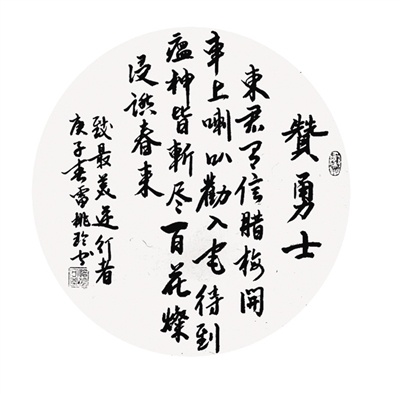 贊勇士
東君有信腊梅開
車上喇叭勸入宅待到
瘟神皆斬尽百花燦
漫春来
致最美逆行者
庚子春雷桃玲书